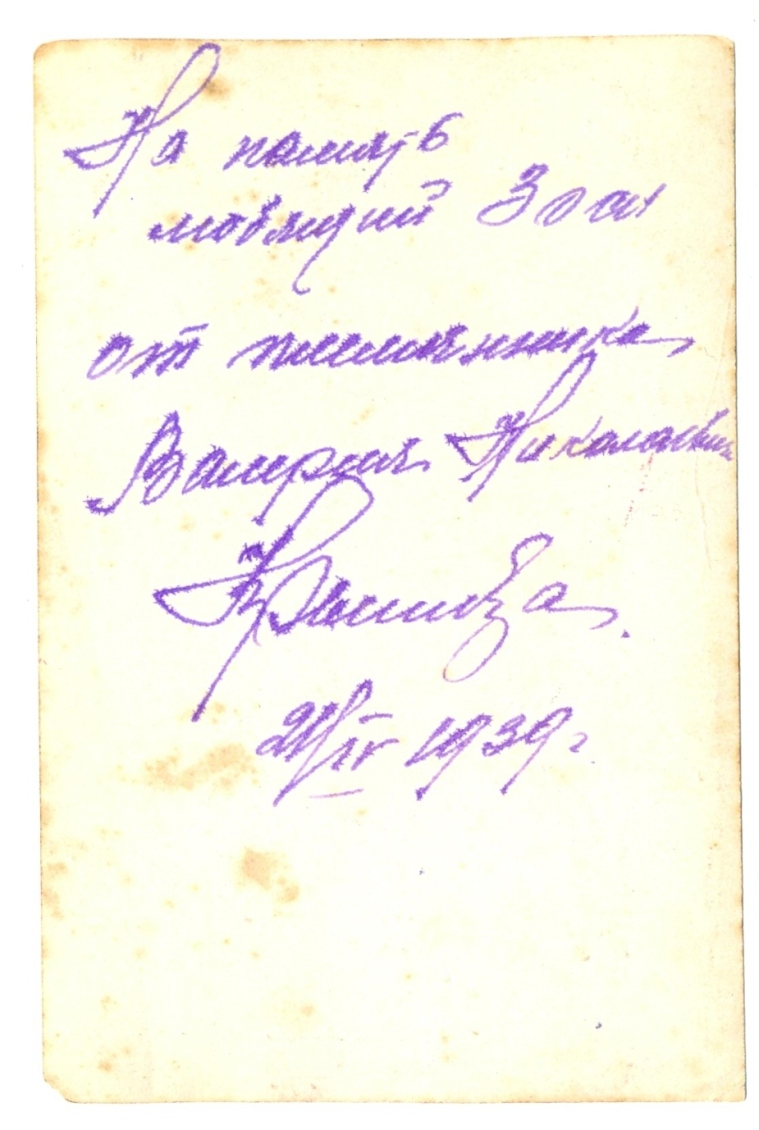 На память
любящий Зои
от племянника
Валерия Николаевич
21/IV 1939 г